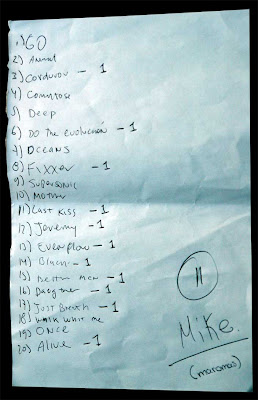 1) GO
2) Animal
3) Corduroy - 1
4) Comatose
5) Deep
6) DO THE evolución - 1
7) OCEANS
8) Fixxer - 1
9) SUPERSONIC
10) Mother
11) LAST Kiss - 1
12) Jeremy - 1
13) Evenflow - 1
14) Black - 1
15) Better Man - 1
16) Daughter - 1
17) Just Breath - 1
18) Walk whit me
19) ONCE
20) Alive - 1
11
Mike.
(maromas)